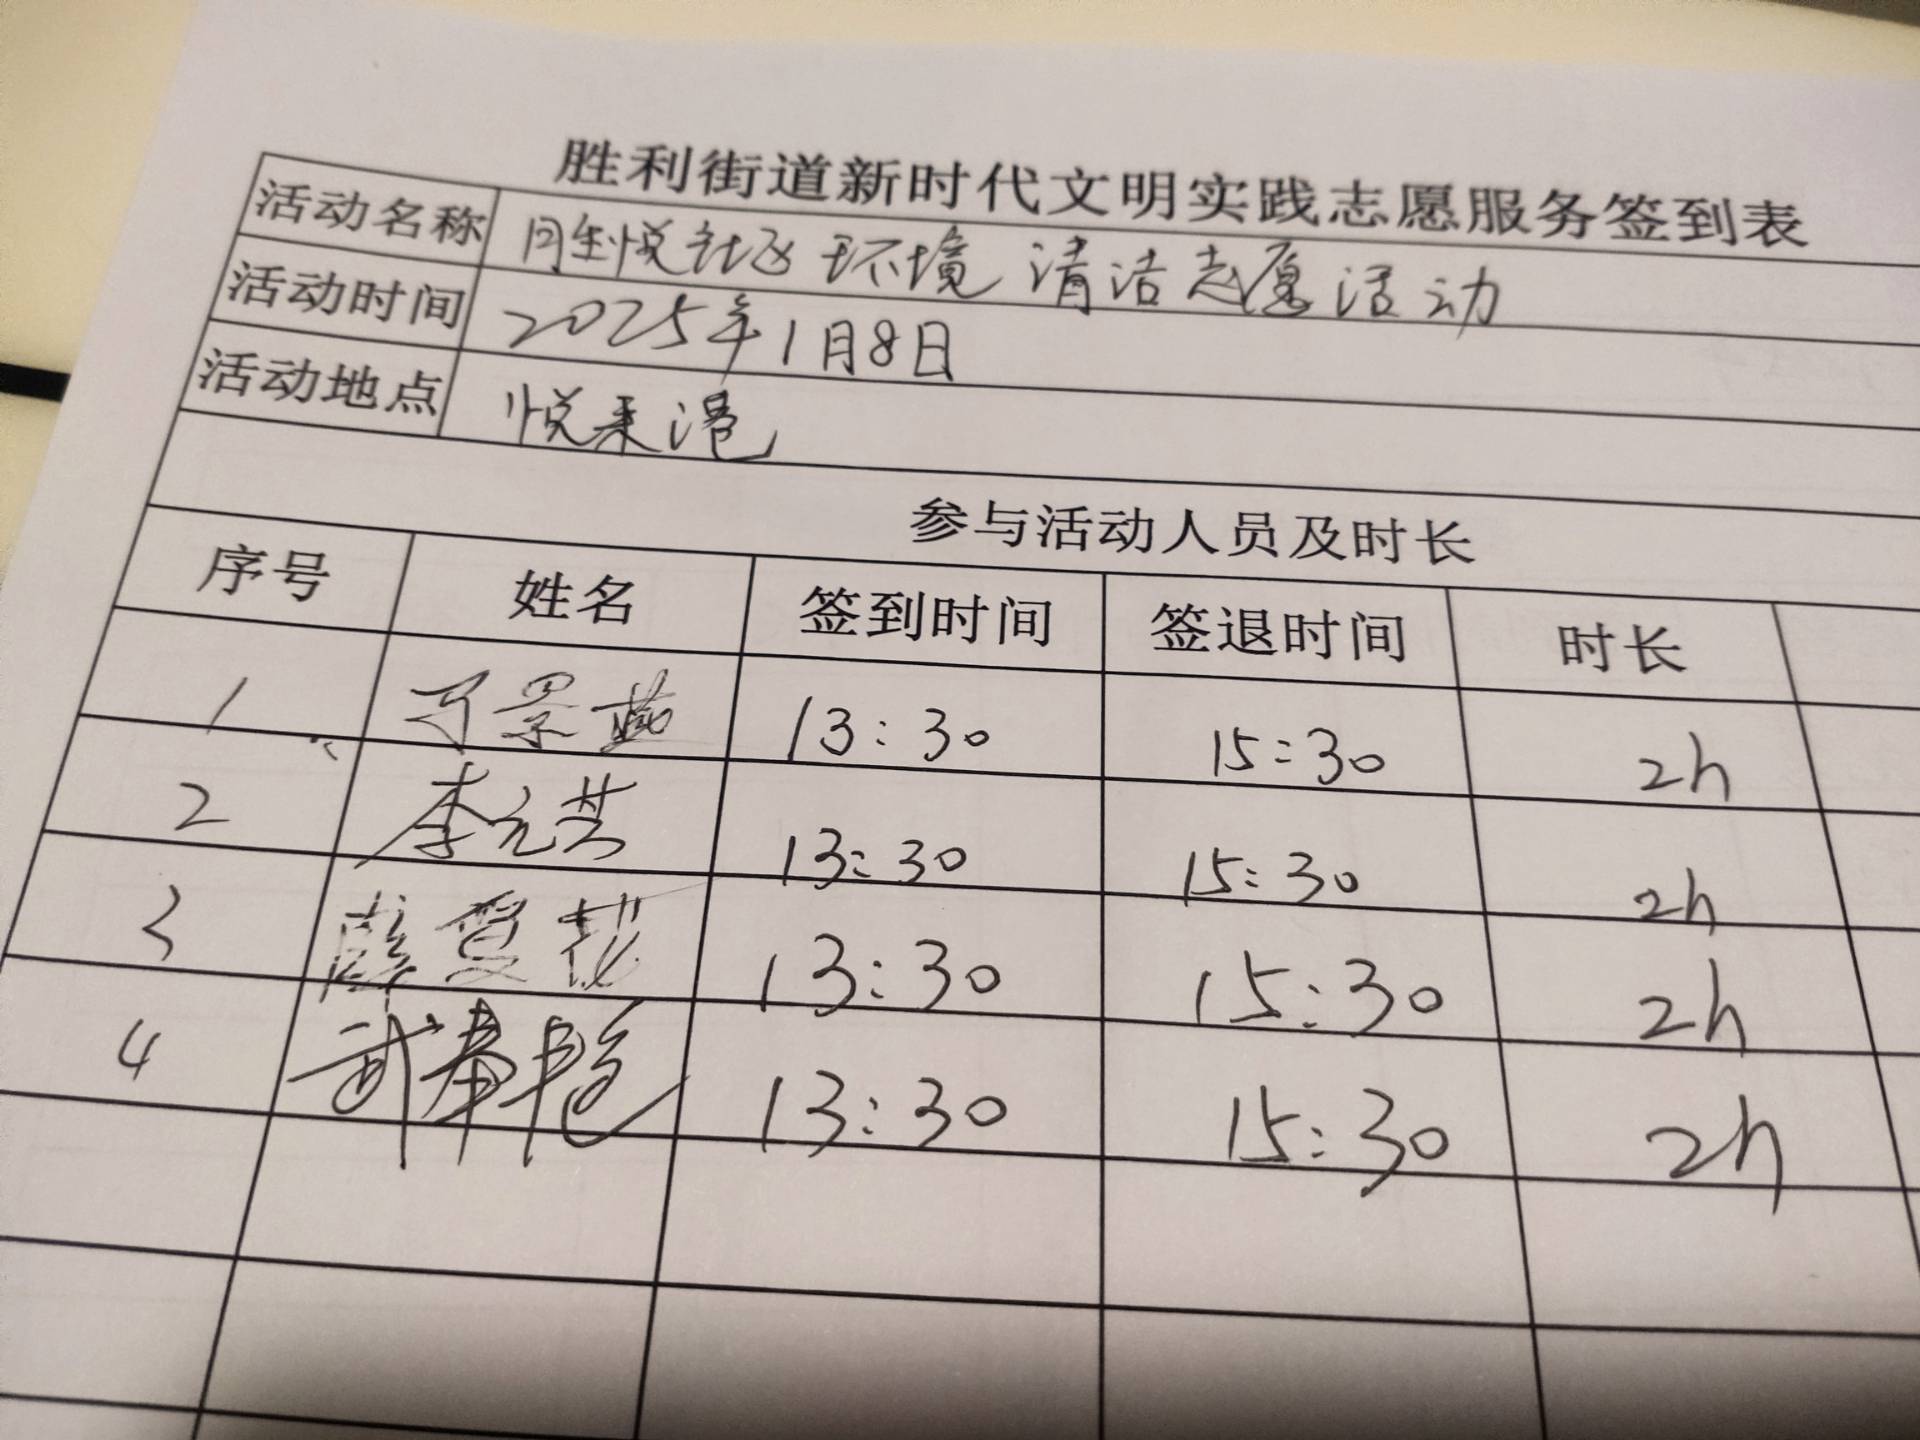 胜利街道新时代文明实践志愿服务签到表
活动名称 悦社区环境清洁志愿活动
活动时间 2025年1月8日
活动地点 悦来港
参与活动人员及时长
序号 姓名 签到时间 签退时间 时长
1 景 13:30 15:30 2h
2 李元芸 13:30 15:30 2h
3 薛 13:30 15:30 2h
4 武春艳 13:30 15:30 2h